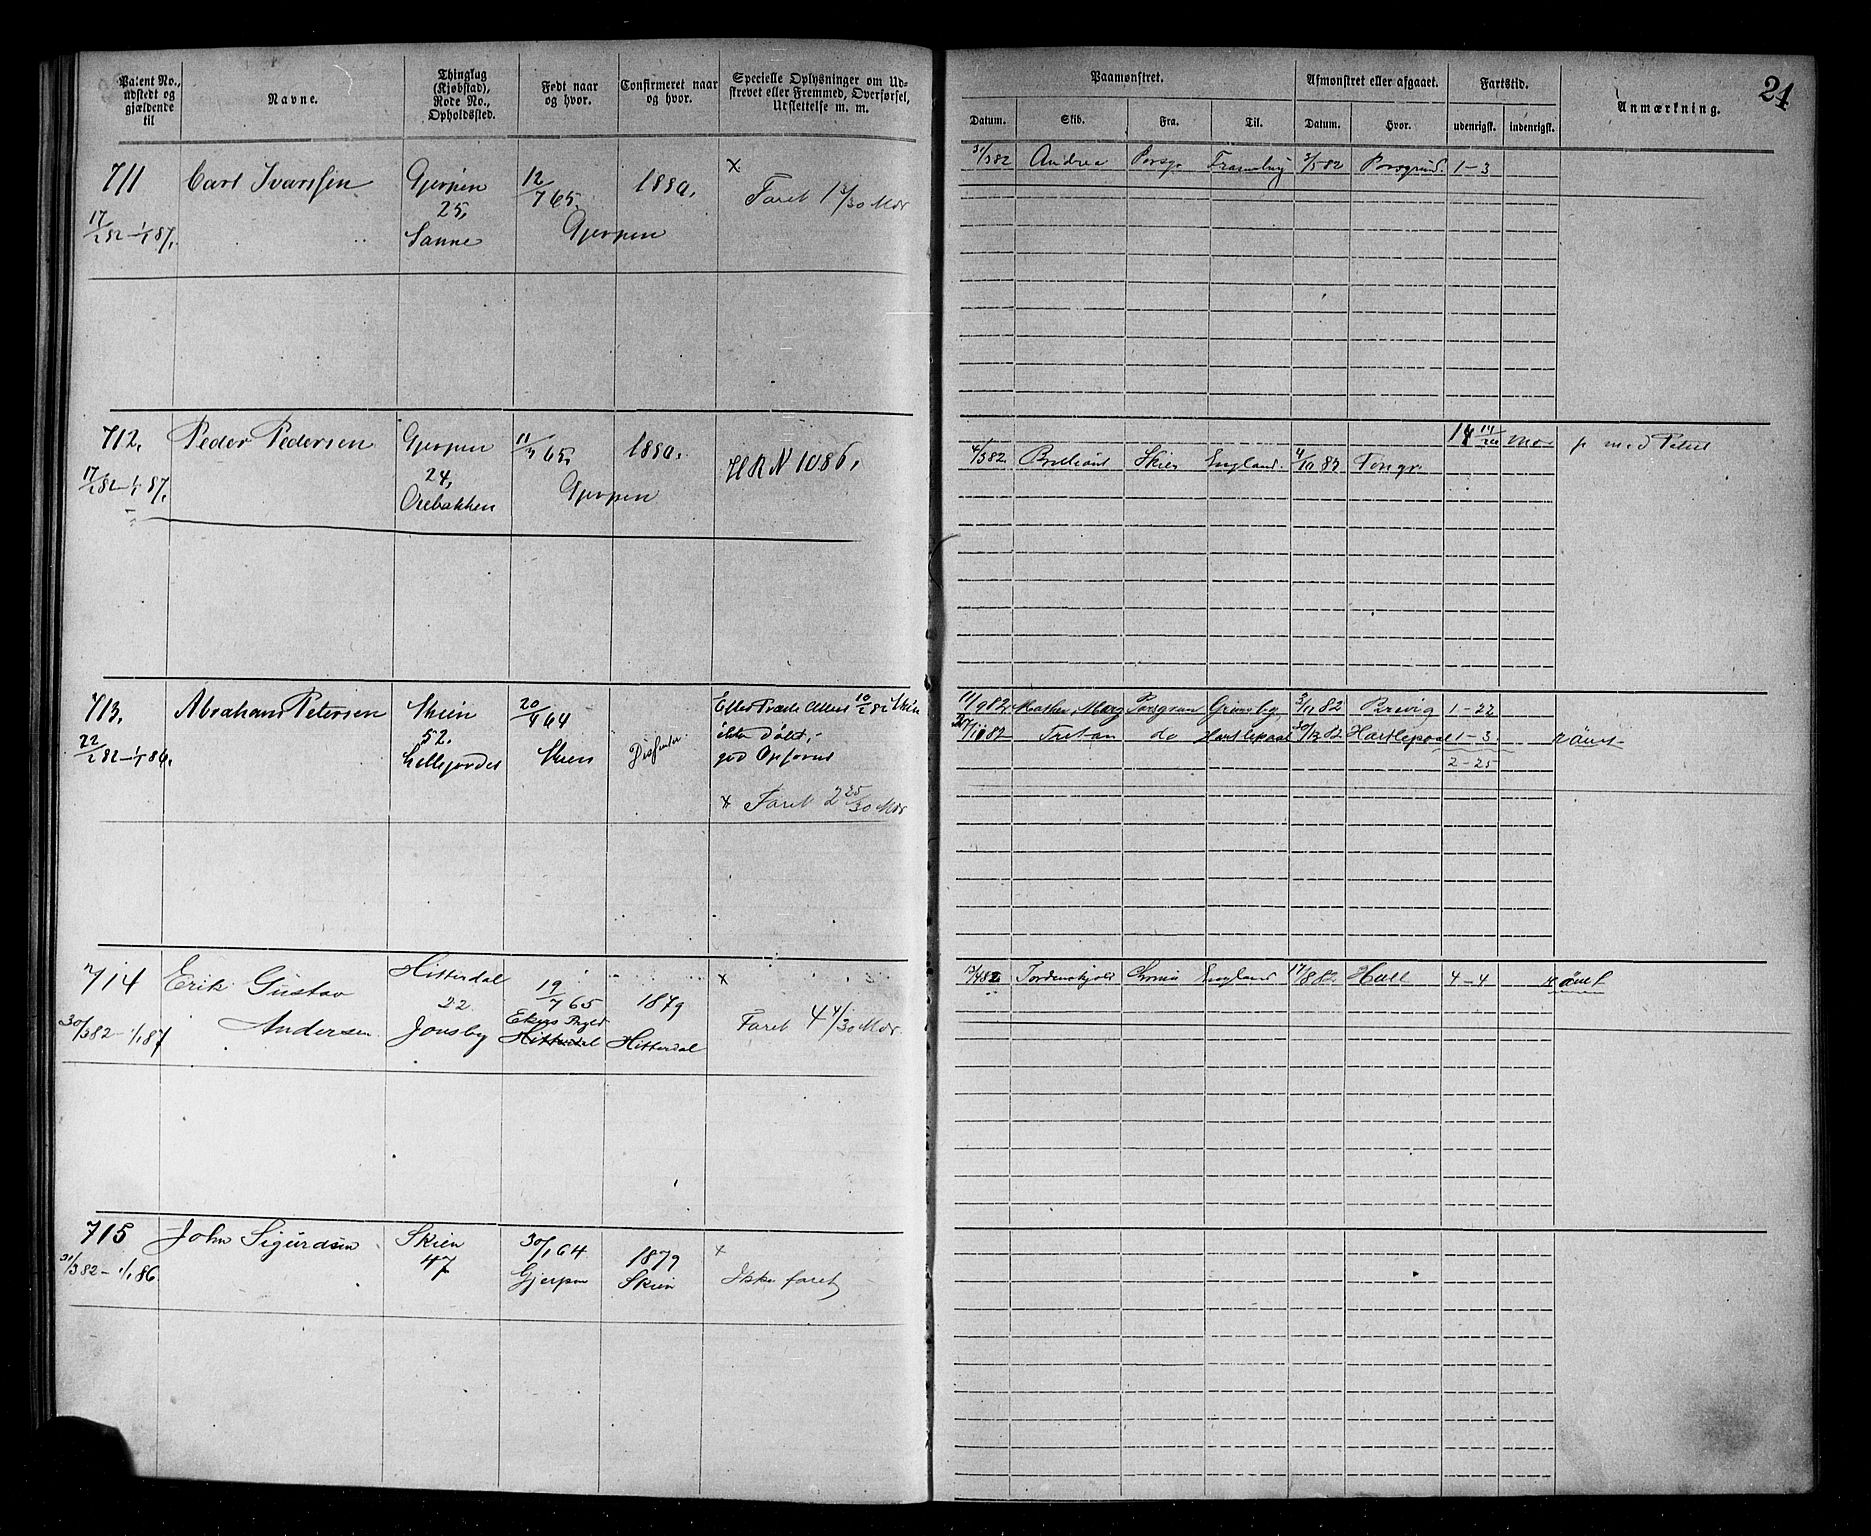 21
Patent No., udstedt og gjældende til
Navne.
Thinglag (Kjøbstad), Rode No., Opholdssted.
Født naar og hvor.
Confirmeret naar og hvor.
Specielle Oplysninger om Udskrevet eller Fremmed, Overførsel, Udslettelse m. m.
Paamønstret.
Afmønstret eller afgaaet.
Fartstid.
Anmærkning.
Datum. Skib. Fra. Til. Datum. Hvor. udenrigst. indenrigst.
711 Carl Ivarssen Gjerpen 12/7 65. 1880. ×
25, Faret 1 3/30 Mdr
17/2 82 – 1/1 87, Sanne Gjerpen
31/3 82 Andrea Porsgr 3/5 82 1–3
712, Peder Pedersen Gjerpen 11/3 65, 1880. HRN 1086,
24,
17/2 82 – 1/1 87, Gjerpen
14 14/30 Mdr
4/3 82 Skien England. 4/10 83
713, Abraham Petersen Skien 20/4 64 Dissenter
52,
22/2 82 – 1/1 86, Skien
ikke Døbt,
god Opførsel
× Faret 2 25/30 Mdr
11/9 82 Porsgrun Grimsby 3/11 82 Brevig 1–22
do Hartlepool 30/12 82 Hartlepool 1–3 rømt
2–25
714 Erik Gustav Hitterdal 19/7 65 1879 ×
22
30/3 82 – 1/1 87 Andersen Jonsby Hitterdal Hitterdal Faret 4 4/30 Mdr.
Tordenskjold England 17/8 82 Hull 4–4 rømt
715 John Sigurdsen Skien 30/1 64 1879 ×
47
31/3 82 – 1/1 86 Gjerpen Skien Ikke faret